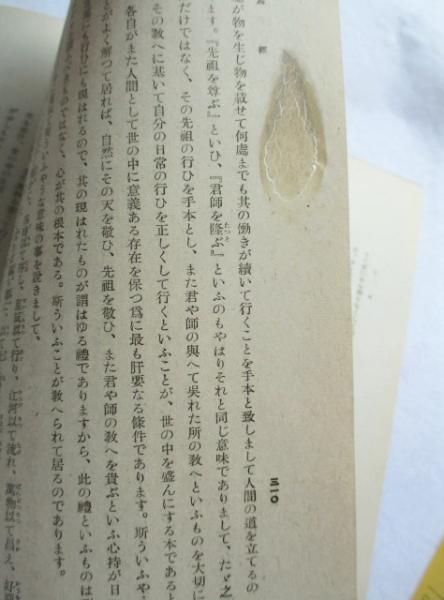 三一〇
が物を生じ物を載せて何處までも其の働きが續いて行くことを手本と致しまして人間の道を立てるの
ます。『先祖を尊ぶ』といひ、『君師を隆ぶ』といふのもやはりそれと同じ意味でありまして、たゞ之
だけではなく、その先祖の行ひを手本とし、また君や師の與へて呉れた所の教へといふものを大切に
その教へに基いて自分の日常の行ひを正しくして行くといふことが、世の中を盛んにする本であると
各自がまた人間として世の中に意義ある存在を保つ爲に最も肝要なる條件であります。斯ういふや
とがよく解つて居れば、自然にその天を敬ひ、先祖を敬ひ、また君や師の教へを貴ぶといふ心持が日
にも行ひにも現はれるので、其の現はれたものが謂はゆる禮でありますから、此の禮といふものは
きものではなく、心が其の根本である。斯ういふことが教へられて居るのであります。
いふやうな意味の事を説きまして、
て行り、江河以て流れ、萬物以て昌え、好